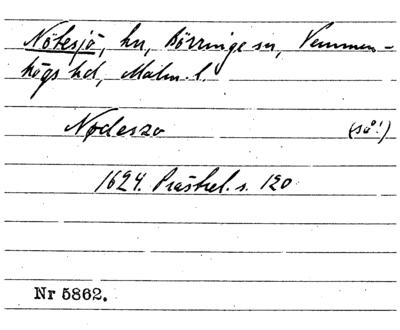 Nötesjö, hn, Börringe sn, Vemmen-
högs hd, Malm. l.
Nødeszo (så!)
1624. Prästrel. s. 120
Nr 5862.